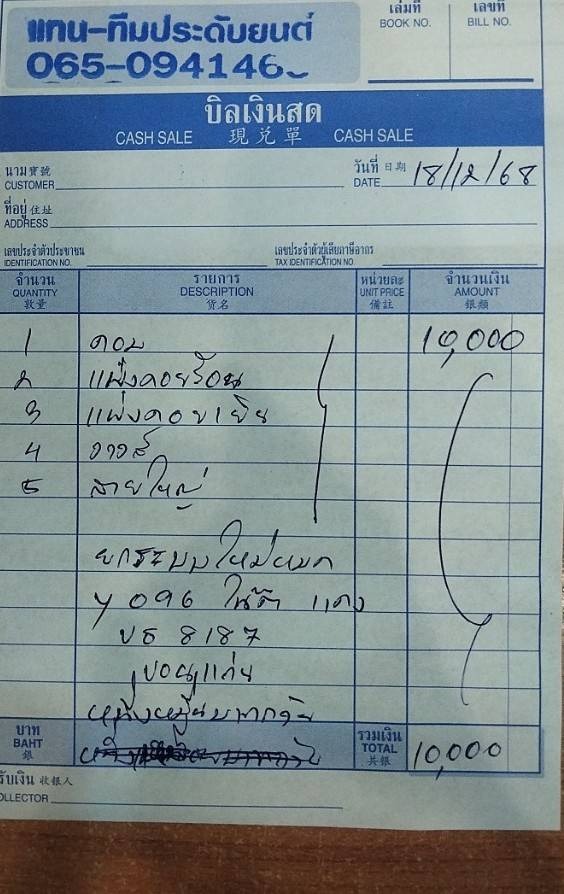 แทน-ทีมประดับยนต์
065-094146
เล่มที่ เลขที่
BOOK NO. BILL NO.
บิลเงินสด
CASH SALE 現兌單 CASH SALE
นาม寶號
CUSTOMER
วันที่ 日期
DATE 18/12/68
ที่อยู่ 住址
ADDRESS
เลขประจำตัวประชาชน เลขประจำตัวผู้เสียภาษีอากร
IDENTIFICATION NO. TAX IDENTIFICATION NO.
จำนวน รายการ หน่วยละ จำนวนเงิน
QUANTITY DESCRIPTION UNIT PRICE AMOUNT
數量 貨名 備註 銀額
1 คอม 10,000
2 แผงคอยร้อน
3 แผงคอยเย็น
4 วาวส์
5 สายใหญ่
ยกระบบใหม่หมด
096 แดง
บธ 8187
ขอนแก่น
หนึ่งหมื่นบาทถ้วน
บาท รวมเงิน
BAHT TOTAL 10,000
銀 共銀
รับเงิน 收銀人
OLLECTOR